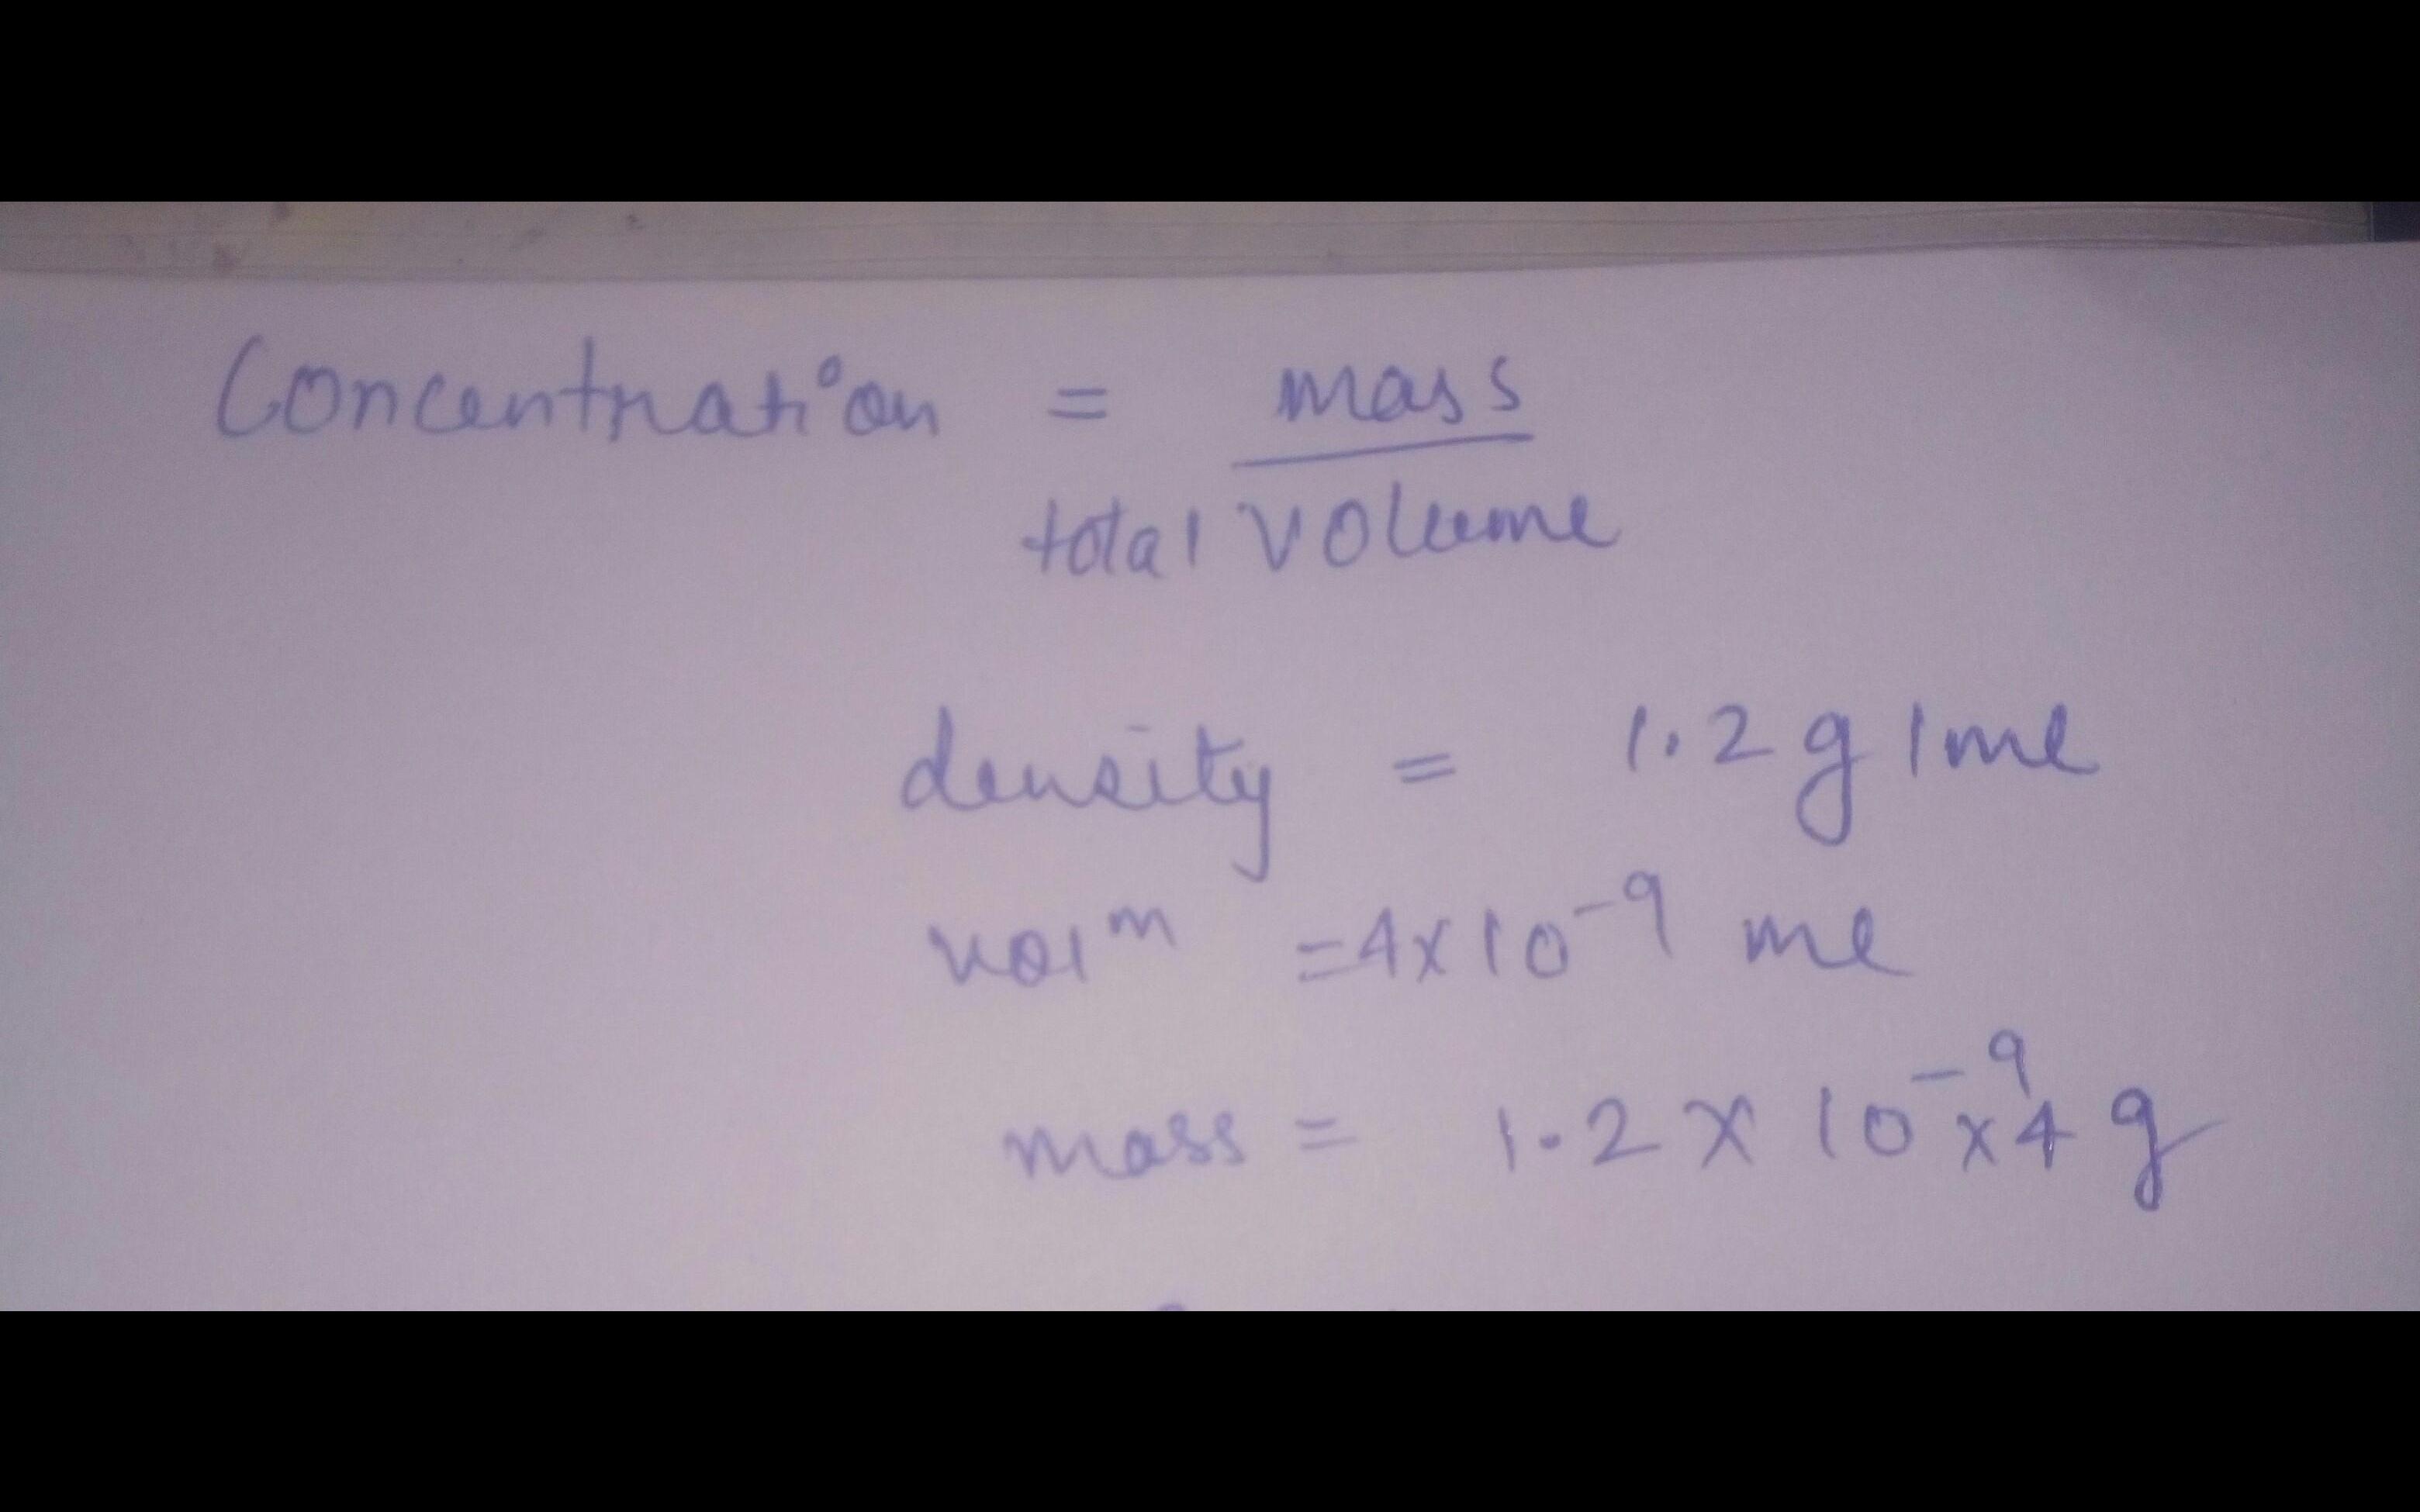 Concentration = mass
total volume
density = 1.2 g/ml
volm = 4x10-9 ml
mass = 1.2 x 10-9 x 4 g